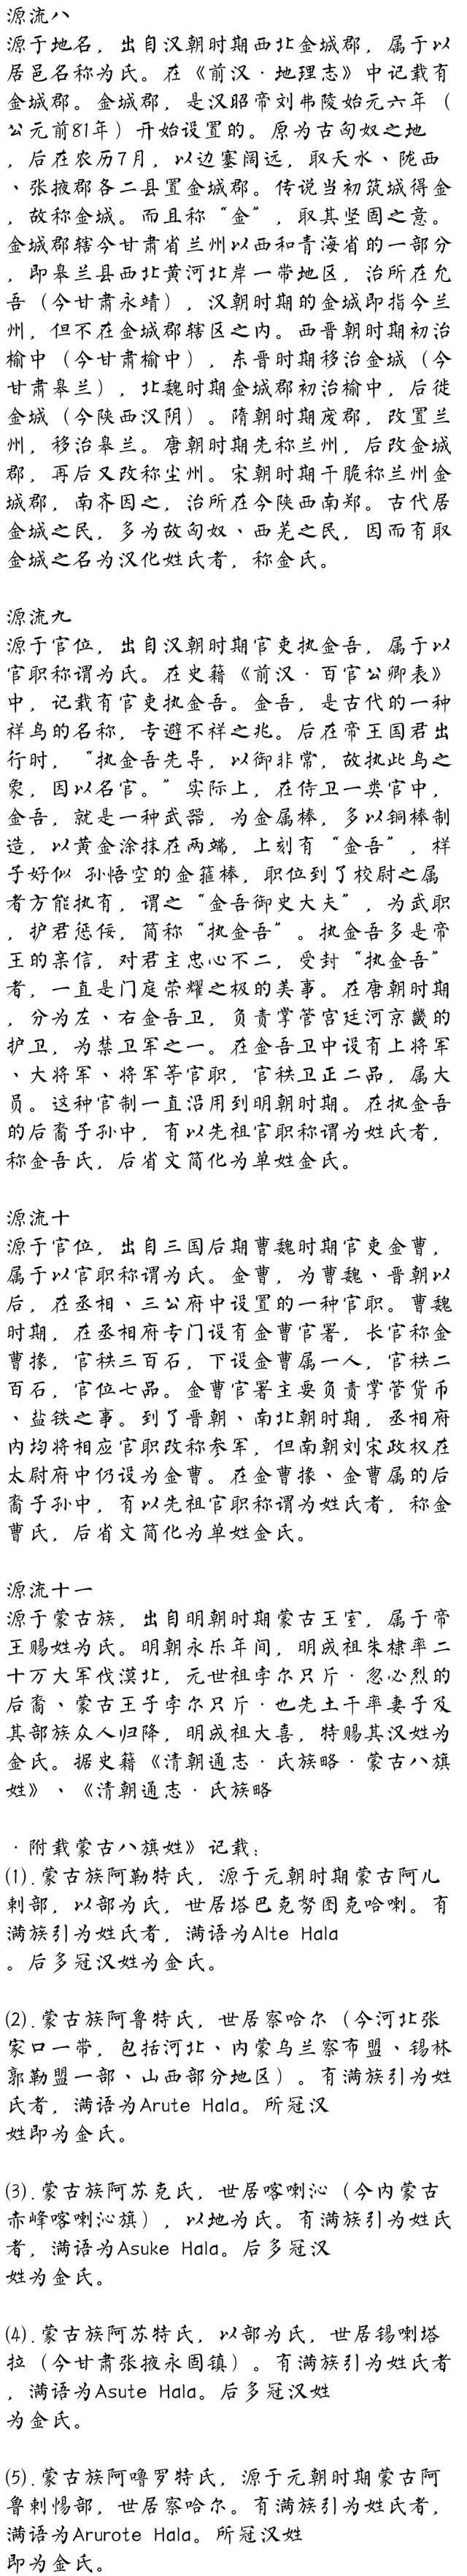 源流八
源于地名，出自汉朝时期西北金城郡，属于以
居邑名称为氏。在《前汉·地理志》中记载有
金城郡。金城郡，是汉昭帝刘弗陵始元六年（
公元前81年）开始设置的。原为古匈奴之地
，后在农历7月，以边塞阔远，取天水、陇西
、张掖郡各二县置金城郡。传说当初筑城得金
，故称金城。而且称“金”，取其坚固之意。
金城郡辖今甘肃省兰州以西和青海省的一部分
，即皋兰县西北黄河北岸一带地区，治所在允
吾（今甘肃永靖），汉朝时期的金城即指今兰
州，但不在金城郡辖区之内。西晋朝时期初治
榆中（今甘肃榆中），东晋时期移治金城（今
甘肃皋兰），北魏时期金城郡初治榆中，后徙
金城（今陕西汉阴）。隋朝时期废郡，改置兰
州，移治皋兰。唐朝时期先称兰州，后改金城
郡，再后又改称尘州。宋朝时期干脆称兰州金
城郡，南齐因之，治所在今陕西南郑。古代居
金城之民，多为故匈奴、西羌之民，因而有取
金城之名为汉化姓氏者，称金氏。
源流九
源于官位，出自汉朝时期官吏执金吾，属于以
官职称谓为氏。在史籍《前汉·百官公卿表》
中，记载有官吏执金吾。金吾，是古代的一种
祥鸟的名称，专避不祥之兆。后在帝王国君出
行时，“执金吾先导，以御非常，故执此鸟之
象，因以名官。”实际上，在侍卫一类官中，
金吾，就是一种武器，为金属棒，多以铜棒制
造，以黄金涂抹在两端，上刻有“金吾”，样
子好似 孙悟空的金箍棒，职位到了校尉之属
者方能执有，谓之“金吾御史大夫”，为武职
，护君惩佞，简称“执金吾”。执金吾多是帝
王的亲信，对君主忠心不二，受封“执金吾”
者，一直是门庭荣耀之极的美事。在唐朝时期
，分为左、右金吾卫，负责掌管宫廷河京畿的
护卫，为禁卫军之一。在金吾卫中设有上将军
、大将军、将军等官职，官秩卫正二品，属大
员。这种官制一直沿用到明朝时期。在执金吾
的后裔子孙中，有以先祖官职称谓为姓氏者，
称金吾氏，后省文简化为单姓金氏。
源流十
源于官位，出自三国后期曹魏时期官吏金曹，
属于以官职称谓为氏。金曹，为曹魏、晋朝以
后，在丞相、三公府中设置的一种官职。曹魏
时期，在丞相府专门设有金曹官署，长官称金
曹掾，官秩三百石，下设金曹属一人，官秩二
百石，官位七品。金曹官署主要负责掌管货币
、盐铁之事。到了晋朝、南北朝时期，丞相府
内均将相应官职改称参军，但南朝刘宋政权在
太尉府中仍设为金曹。在金曹掾、金曹属的后
裔子孙中，有以先祖官职称谓为姓氏者，称金
曹氏，后省文简化为单姓金氏。
源流十一
源于蒙古族，出自明朝时期蒙古王室，属于帝
王赐姓为氏。明朝永乐年间，明成祖朱棣率二
十万大军伐漠北，元世祖孛尔只斤·忽必烈的
后裔、蒙古王子孛尔只斤·也先土干率妻子及
其部族众人归降，明成祖大喜，特赐其汉姓为
金氏。据史籍《清朝通志·氏族略·蒙古八旗
姓》、《清朝通志·氏族略
·附载蒙古八旗姓》记载：
⑴.蒙古族阿勒特氏，源于元朝时期蒙古阿儿
剌部，以部为氏，世居塔巴克努图克哈喇。有
满族引为姓氏者，满语为Alte Hala
。后多冠汉姓为金氏。
⑵.蒙古族阿鲁特氏，世居察哈尔（今河北张
家口一带，包括河北、内蒙乌兰察布盟、锡林
郭勒盟一部、山西部分地区）。有满族引为姓
氏者，满语为Arute Hala。所冠汉
姓即为金氏。
⑶.蒙古族阿苏克氏，世居喀喇沁（今内蒙古
赤峰喀喇沁旗），以地为氏。有满族引为姓氏
者，满语为Asuke Hala。后多冠汉
姓为金氏。
⑷.蒙古族阿苏特氏，以部为氏，世居锡喇塔
拉（今甘肃张掖永固镇）。有满族引为姓氏者
，满语为Asute Hala。后多冠汉姓
为金氏。
⑸.蒙古族阿噜罗特氏，源于元朝时期蒙古阿
鲁剌惕部，世居察哈尔。有满族引为姓氏者，
满语为Arurote Hala。所冠汉姓
即为金氏。